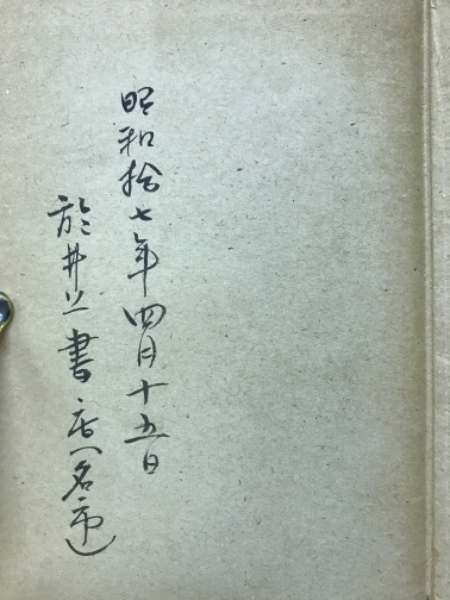 昭和拾七年四月十五日
於井上書店(名市)